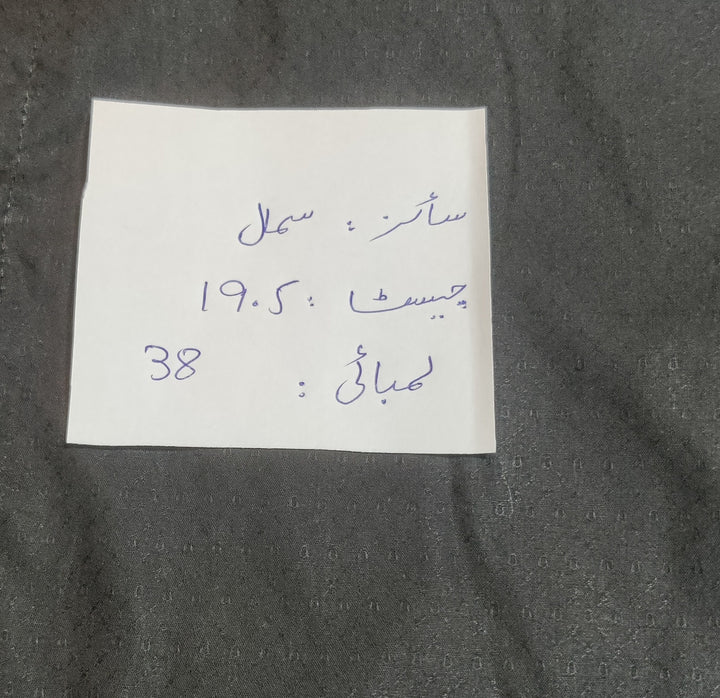 سائز : سمال
چیسٹ : 19.5
لمبائی : 38